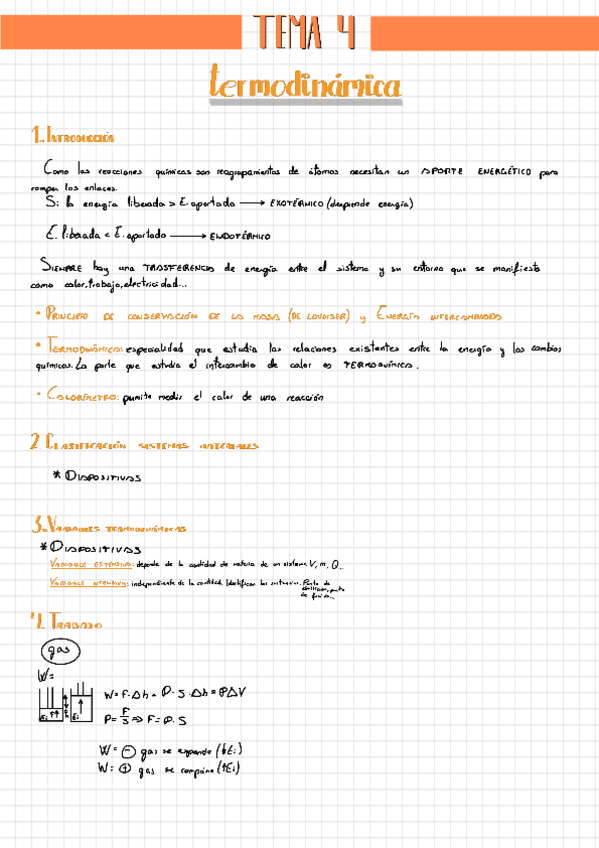 TEMA 4
termodinámica
1. INTRODUCCIÓN
Como las reacciones químicas son reagrupamientos de átomos necesitan un APORTE ENERGÉTICO para
romper los enlaces.
Si la energía liberada > E aportada → EXOTÉRMICO (desprende energía)
E. liberada < E. aportada → ENDOTÉRMICO
SIEMPRE hay una TRASFERENCIA de energía entre el sistema y su entorno que se manifiesta
como calor, trabajo, electricidad...
• PRINCIPIO DE CONSERVACIÓN DE LA MASA (DE LAVOISER) y ENERGÍA INTERCAMBIADA
• TERMODINÁMICA: especialidad que estudia las relaciones existentes entre la energía y los cambios
químicos. La parte que estudia el intercambio de calor es TERMOQUÍMICA.
• CALORÍMETRO: permite medir el calor de una reacción
2 CLASIFICACIÓN SISTEMAS MATERIALES
* DIAPOSITIVAS
3. VARIABLES TERMODINÁMICAS
* DIAPOSITIVAS
VARIABLE EXTENSIVA: depende de la cantidad de materia de un sistema. V, m, Q..
VARIABLE INTENSIVA: independiente de la cantidad. Identifican las sustancias. Punto de
ebullición, punto
de fusión...
4. TRABAJO
gas
W=
W= F·Δh = P·S·Δh = PΔV
P= F/S => F= P·S
W= ⊖ gas se expande (↓Ei)
W: ⊕ gas se comprime (↑Ei)